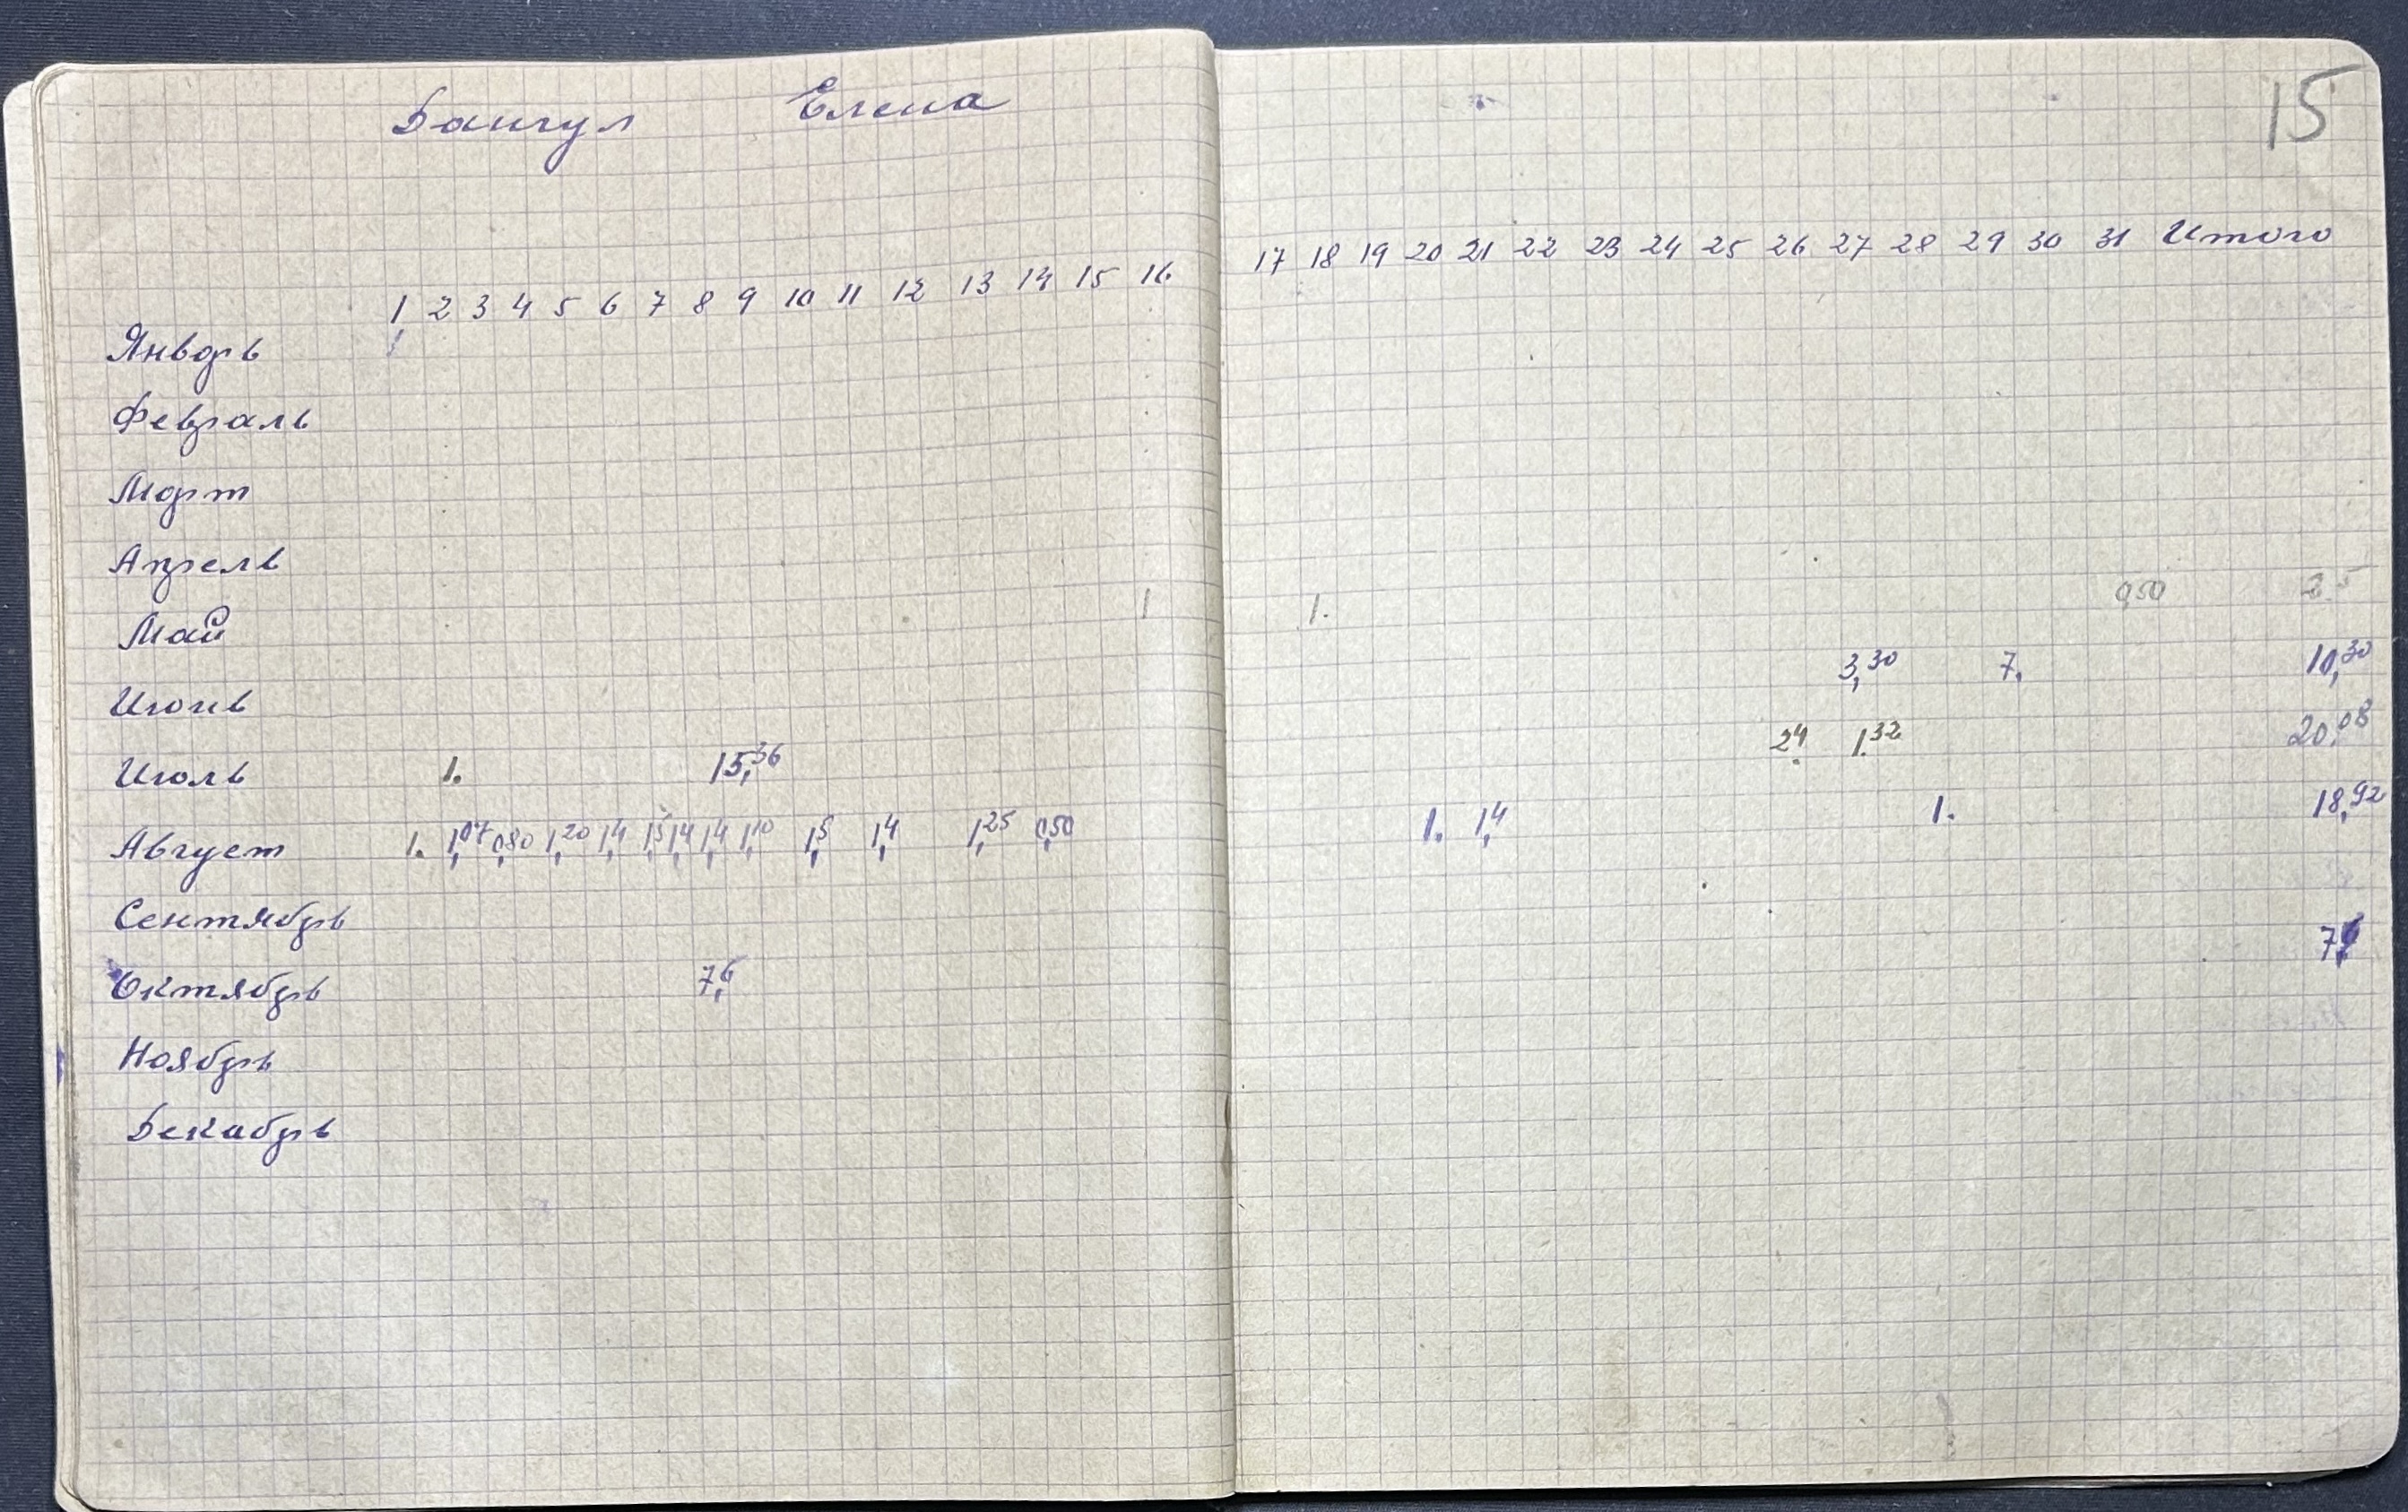 15
Бангул Елена
1 2 3 4 5 6 7 8 9 10 11 12 13 14 15 16 17 18 19 20 21 22 23 24 25 26 27 28 29 30 31 Итого
Январь
Февраль
Март
Апрель
Май 1 1. 0,50 2.5
Июнь 3,30 7, 10,30
Июль 1. 15,36 2.4 1.32 20,08
Август 1. 1,07 0,80 1,20 1,4 1,5 1,4 1,4 1,10 1,5 1,4 1,25 0,50 1. 1,4 1. 18,92
Сентябрь
Октябрь 7,6 7,6
Ноябрь
Декабрь